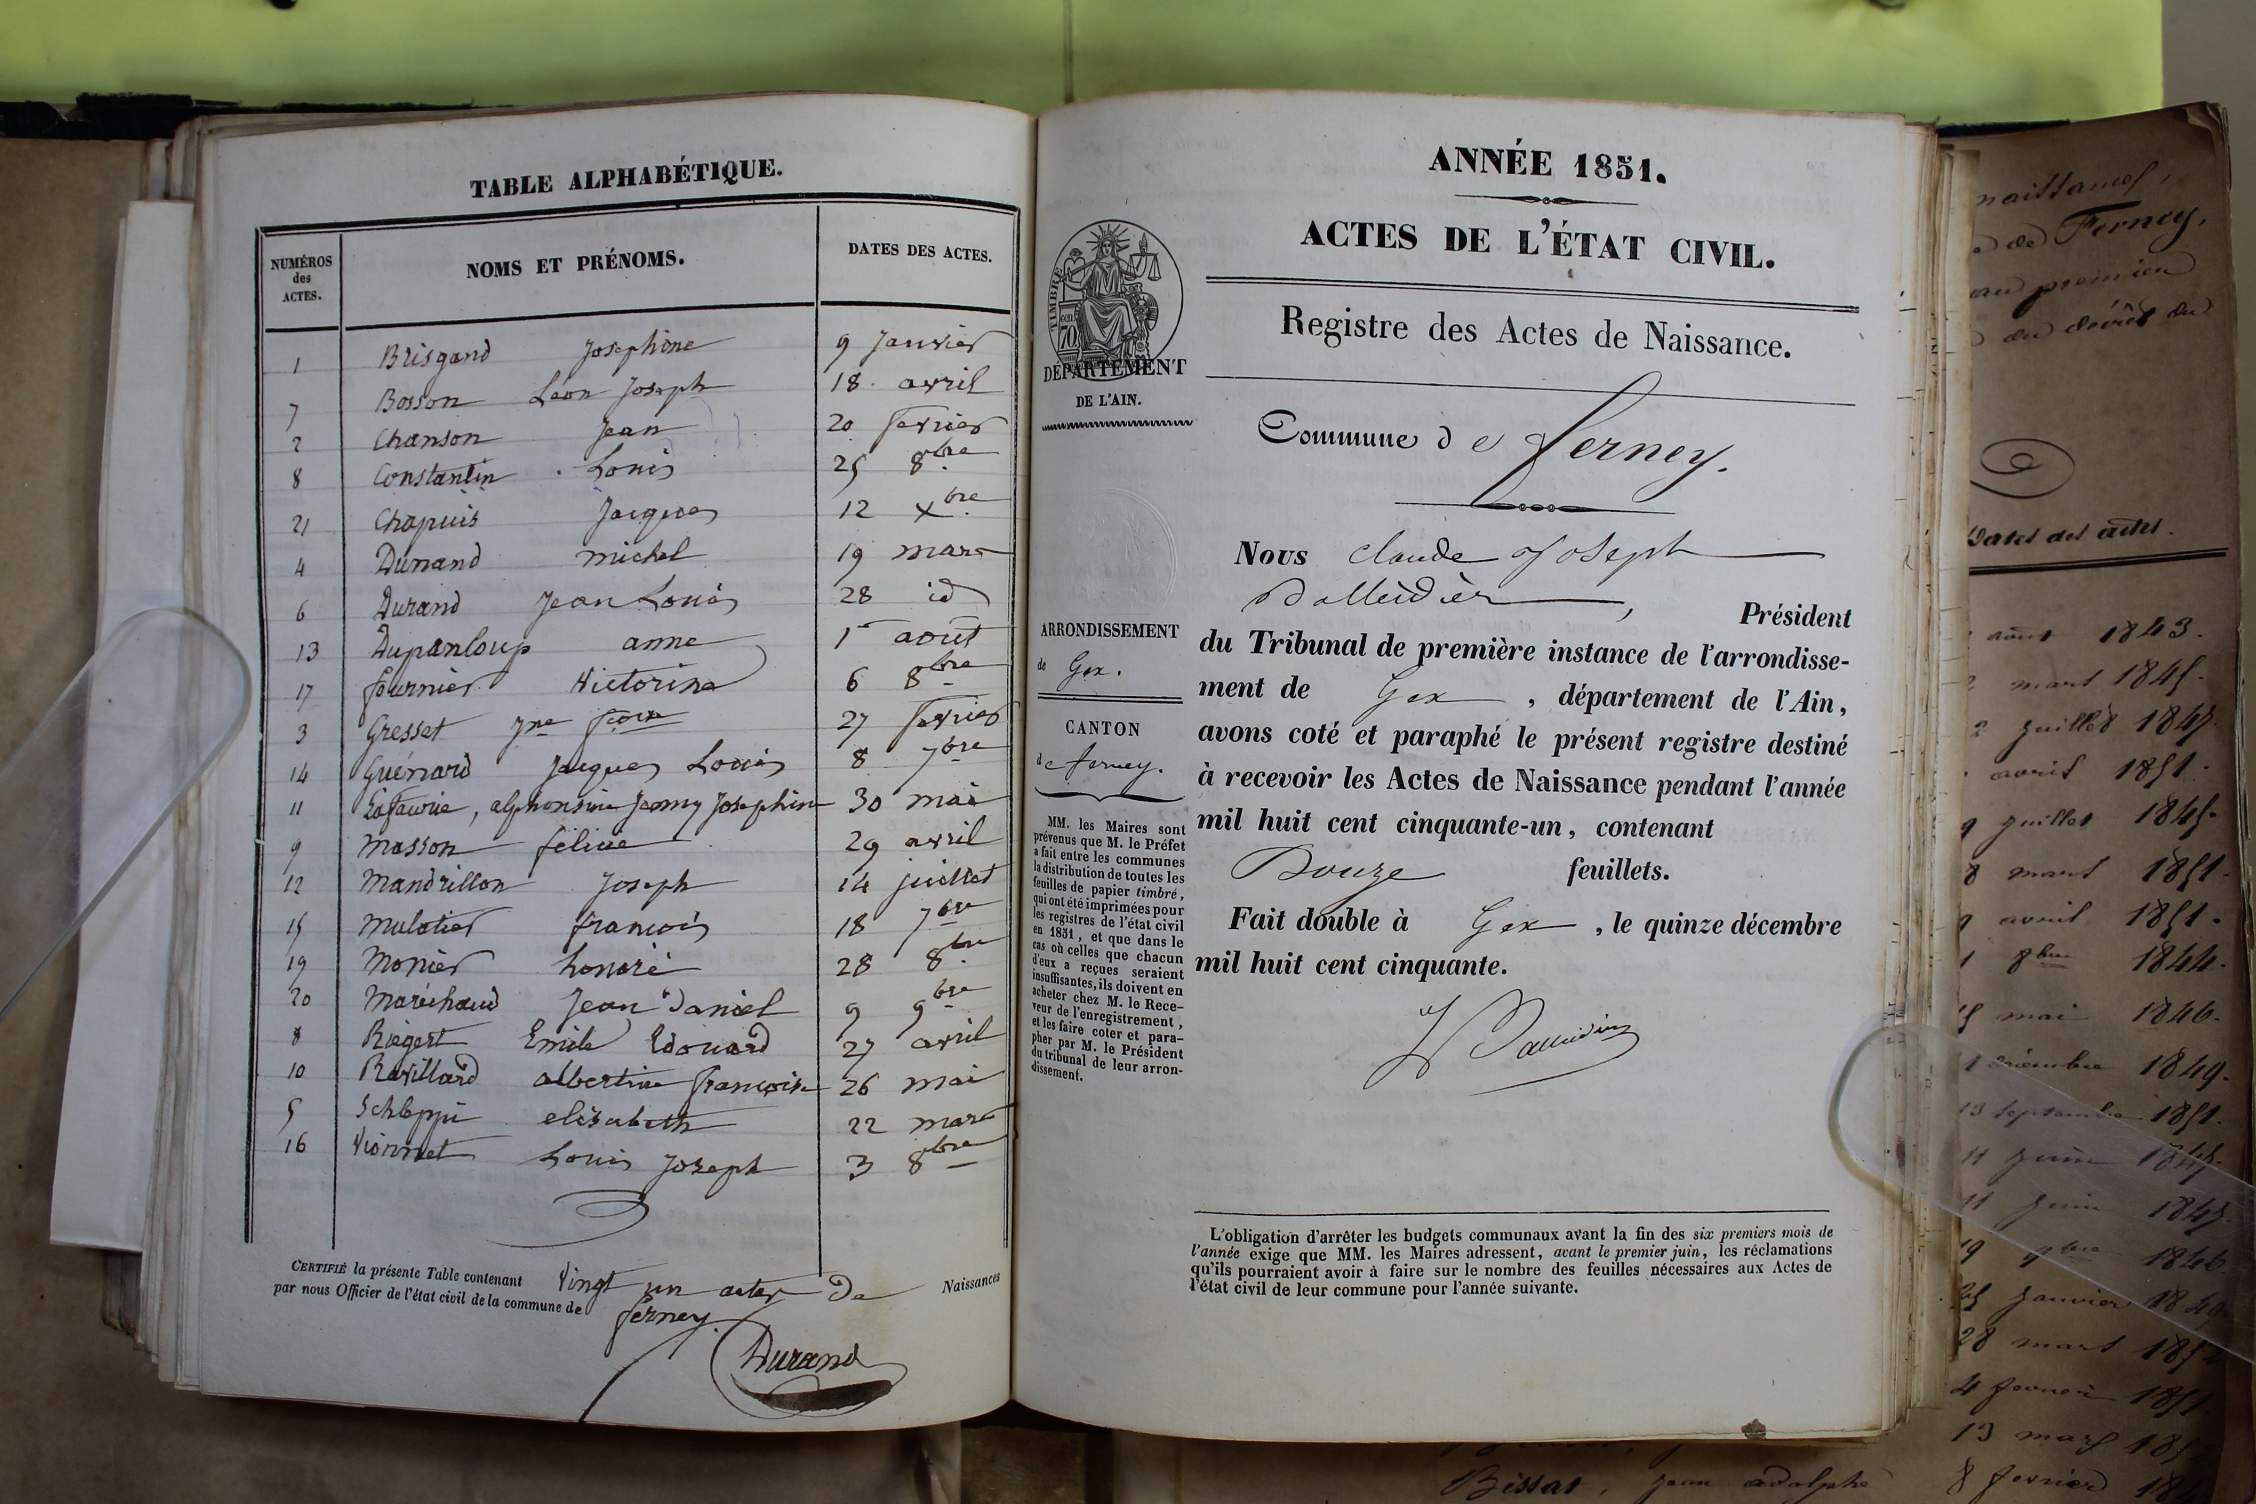 TABLE ALPHABÉTIQUE.
NUMÉROS des ACTES. NOMS ET PRÉNOMS. DATES DES ACTES.
1 Brisgand Josephine 9 Janvier
7 Bosson Léon Joseph 18 avril
2 Chanson Jean 20 fevrier
8 Constantin Louis 25 8bre
21 Chapuis Jacques 12 Xbre
4 Dunand michel 19 mars
6 Durand Jean Louis 28 id
13 Dupanloup anne 1r août
17 fournier Victorine 6 8bre
3 Gresset Jne fcois 27 fevrier
14 Guénard Jacques Louis 8 7bre
11 Lafaurie, alphonsine Jenny Josephine 30 mai
9 Masson félixe 29 avril
12 Mandrillon Joseph 14 juillet
15 Mulatier francois 18 7bre
19 Monier honoré 28 8bre
20 Maréchaud Jean Daniel 9 9bre
8 Riegert Emile Edouard 27 avril
10 Ravillard albertine françoise 26 mai
5 Schleppi elisabeth 22 mars
16 Vionnet Louis Joseph 3 8bre
CERTIFIÉ la présente Table contenant Vingt un actes De Naissances
par nous Officier de l'état civil de la commune de ferney.
Durand
ANNÉE 1851.
ACTES DE L'ÉTAT CIVIL.
Registre des Actes de Naissance.
TIMBRE
70
DÉPARTEMENT
DE L'AIN.
Commune de Ferney.
Nous Claude Joseph
Président
du Tribunal de première instance de l'arrondisse-
ment de Gex, département de l'Ain,
avons coté et paraphé le présent registre destiné
à recevoir les Actes de Naissance pendant l'année
mil huit cent cinquante-un, contenant
Douze feuillets.
Fait double à Gex, le quinze décembre
mil huit cent cinquante.
ARRONDISSEMENT
de Gex.
CANTON
de ferney.
MM. les Maires sont
prévenus que M. le Préfet
a fait entre les communes
la distribution de toutes les
feuilles de papier timbré,
qui ont été imprimées pour
les registres de l'état civil
en 1851, et que dans le
cas où celles que chacun
d'eux a reçues seraient
insuffisantes, ils doivent en
acheter chez M. le Rece-
veur de l'enregistrement,
et les faire coter et para-
pher par M. le Président
du tribunal de leur arron-
dissement.
L'obligation d'arrêter les budgets communaux avant la fin des six premiers mois de
l'année exige que MM. les Maires adressent, avant le premier juin, les réclamations
qu'ils pourraient avoir à faire sur le nombre des feuilles nécessaires aux Actes de
l'état civil de leur commune pour l'année suivante.
naissances,
de Ferney,
au premier
du décret du
Dates des actes.
août 1843.
mars 1845.
juillet 1847.
avril 1851.
juillet 1845.
8 mars 1851.
avril 1851.
1 8bre 1844.
15 mai 1846.
1849.
13 septembre 1851.
11 juin
11 juin 1847.
19 9bre 1846.
25 janvier 1849
28 mars
4 fevrier 1851
13 mars
Bissat, jean adolphe 8 fevrier